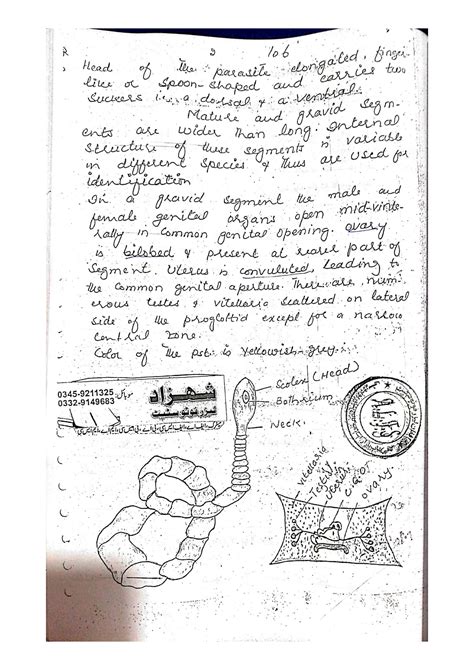 R 3 106
Head of the parasite elongated, finger
like or spoon-shaped and carries two
suckers i.e. a dorsal & a ventral.
Mature and gravid segm-
ents are wider than long. Internal
structure of these segments is variable
in different species & thus are used for
identification
In a gravid segment the male and
female genital organs open mid-vintr-
rally in common genital opening. ovary
is bilobed & present at rarer part of
segment. Uterus is convuluted, leading to
the common genital aperture. There are num-
erous testes & vitellaria scattered on lateral
side of the proglottid except for a narrow
central zone.
Color of the pst. is yellowish-grey.
0345-9211325
0332-9149683
موبائل:
شہزاد
لیزر فوٹو سٹیٹ
Scolex (Head)
Bothrium
Neck
vitellaria
Testis
Uterus
C.G.O
ovary